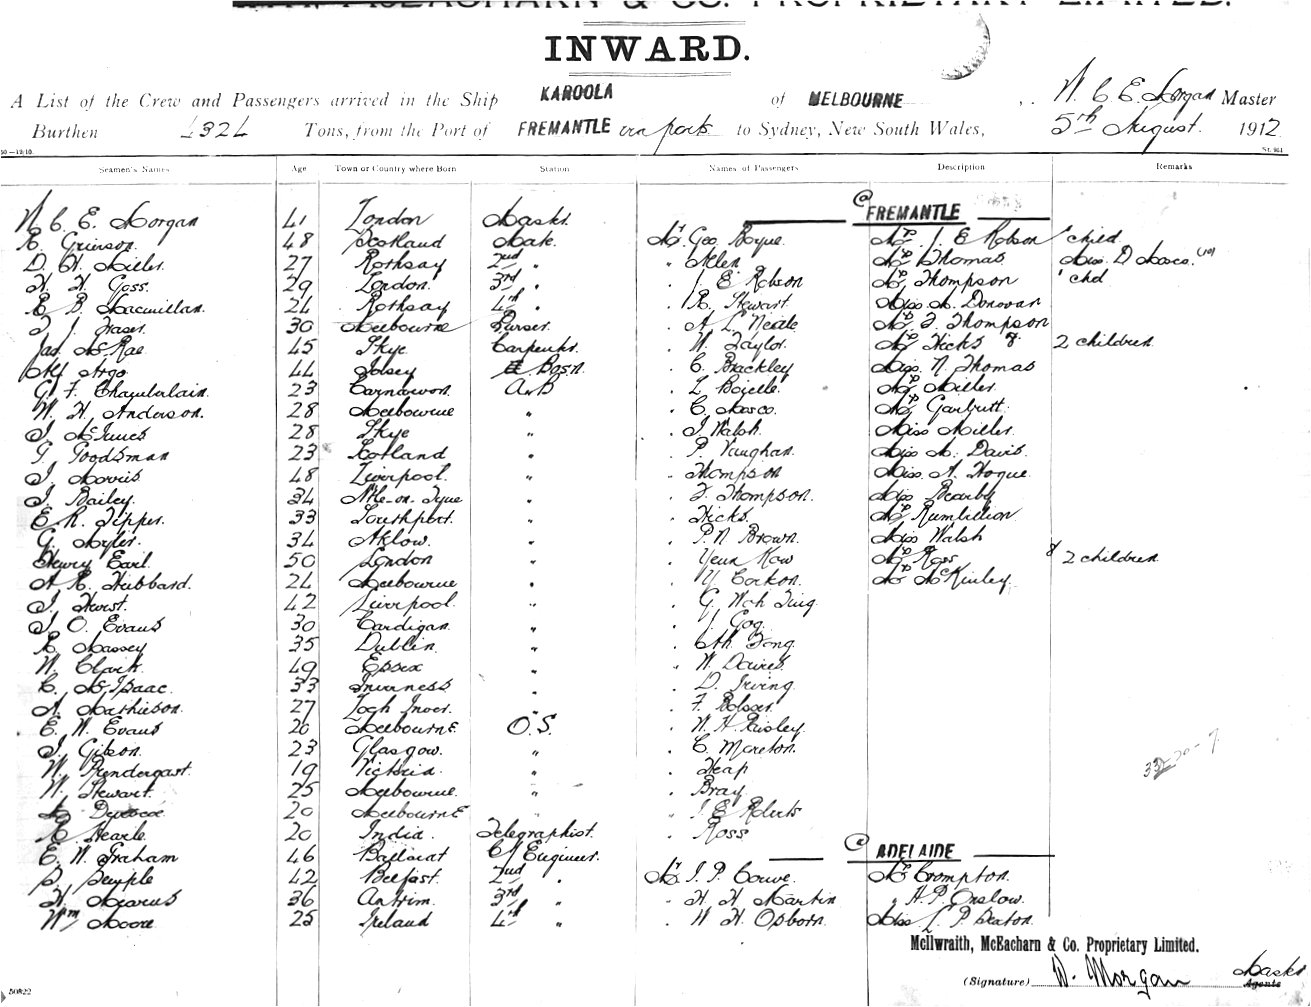 McEACHARN & CO. PROPRIETARY LIMITED.
INWARD.
A List of the Crew and Passengers arrived in the Ship KAROOLA of MELBOURNE , W. C. E. Morgan Master
Burthen 4324 Tons, from the Port of FREMANTLE ports to Sydney, New South Wales, 5th August. 1912
Seamen's Names Age Town or Country where Born Station Names of Passengers Description Remarks
FREMANTLE
W C E. Morgan 41 London Master
R. Grierson 48 Scotland Mate. Mr Geo Boyne. Mrs J. E Robson child
D. H. Miller. 27 Rothsay 2nd " " Allen Mrs Thomas Miss D Masco.
H. H. Goss. 29 London. 3rd " " J. E Robson Mrs Thompson chd
E B. Macmillan. 24 Rothsay 4th " " R. Stewart. Miss M. Donovan
J. J. Fraser. 30 Melbourne Purser. " A L Neale Mrs F. Thompson
Jas McRae 45 Skye Carpenter. " W Taylor. Mrs Hicks & 2 children
Alf Argo 44 Bosn. " C. Brackley Miss N. Thomas
G F. Chamberlain. 23 Carnarvon. A.B " L Boyelle. Mrs Miller
W. H. Anderson. 28 Melbourne " " C. Masco. Mrs Garbutt.
J McInnes 28 Skye " " J Walsh. Miss Miller.
G Goodsman 23 " " P. Vaughan. Miss M. Davis.
J. Morris 48 Liverpool. " " Thompson Miss A. Hogue.
J. Bailey. 34 N'tle-on-Tyne " " F. Thompson. Miss Bearby
E R. Tipper. 33 Southport. " " Hicks. Mrs
G. Myler. 34 Arklow. " " P. N Brown. Miss Walsh
Henry Earl. 50 London " " Yeun Kow Mrs Ross & 2 children
A. R. Hubbard. 24 Melbourne " " Y. Corkon. Mrs McKinley.
J. Hurst. 42 Liverpool. " " G. Wah Ting.
J. O. Evans 30 Cardigan. " " J Goq.
R. Massey 35 Dublin. " " Ah Fong.
W. Clark. 49 Essex " " W. Davies.
C. McIsaac. 33 Inverness " " D. Irving.
A. Mathieson. 27 Loch Inver. " " F.
E. W. Evans 20 Melbourne O.S. " W. H. Paisley.
J. Gibson. 23 Glasgow. " " C. Moreton.
W. Prendergast. 19 Victoria. " " Heap
W. Stewart. 25 Melbourne. " " Bray.
20 Melbourne " " J. E Roberts
R Hearle 20 India. Telegraphist. " Ross
ADELAIDE
E. W. Graham 46 Ballarat C/ Engineer. Mr J. P. Mrs Crompton.
S. 42 Belfast. 2nd " " H. H. Martin " H. P. Onslow.
H. 36 Antrim. 3rd " " W H. Osborn. Miss L. P
Wm Moore 25 Ireland 4th "
McIlwraith, McEacharn & Co. Proprietary Limited.
(Signature) W. Morgan Master
Agents
50822